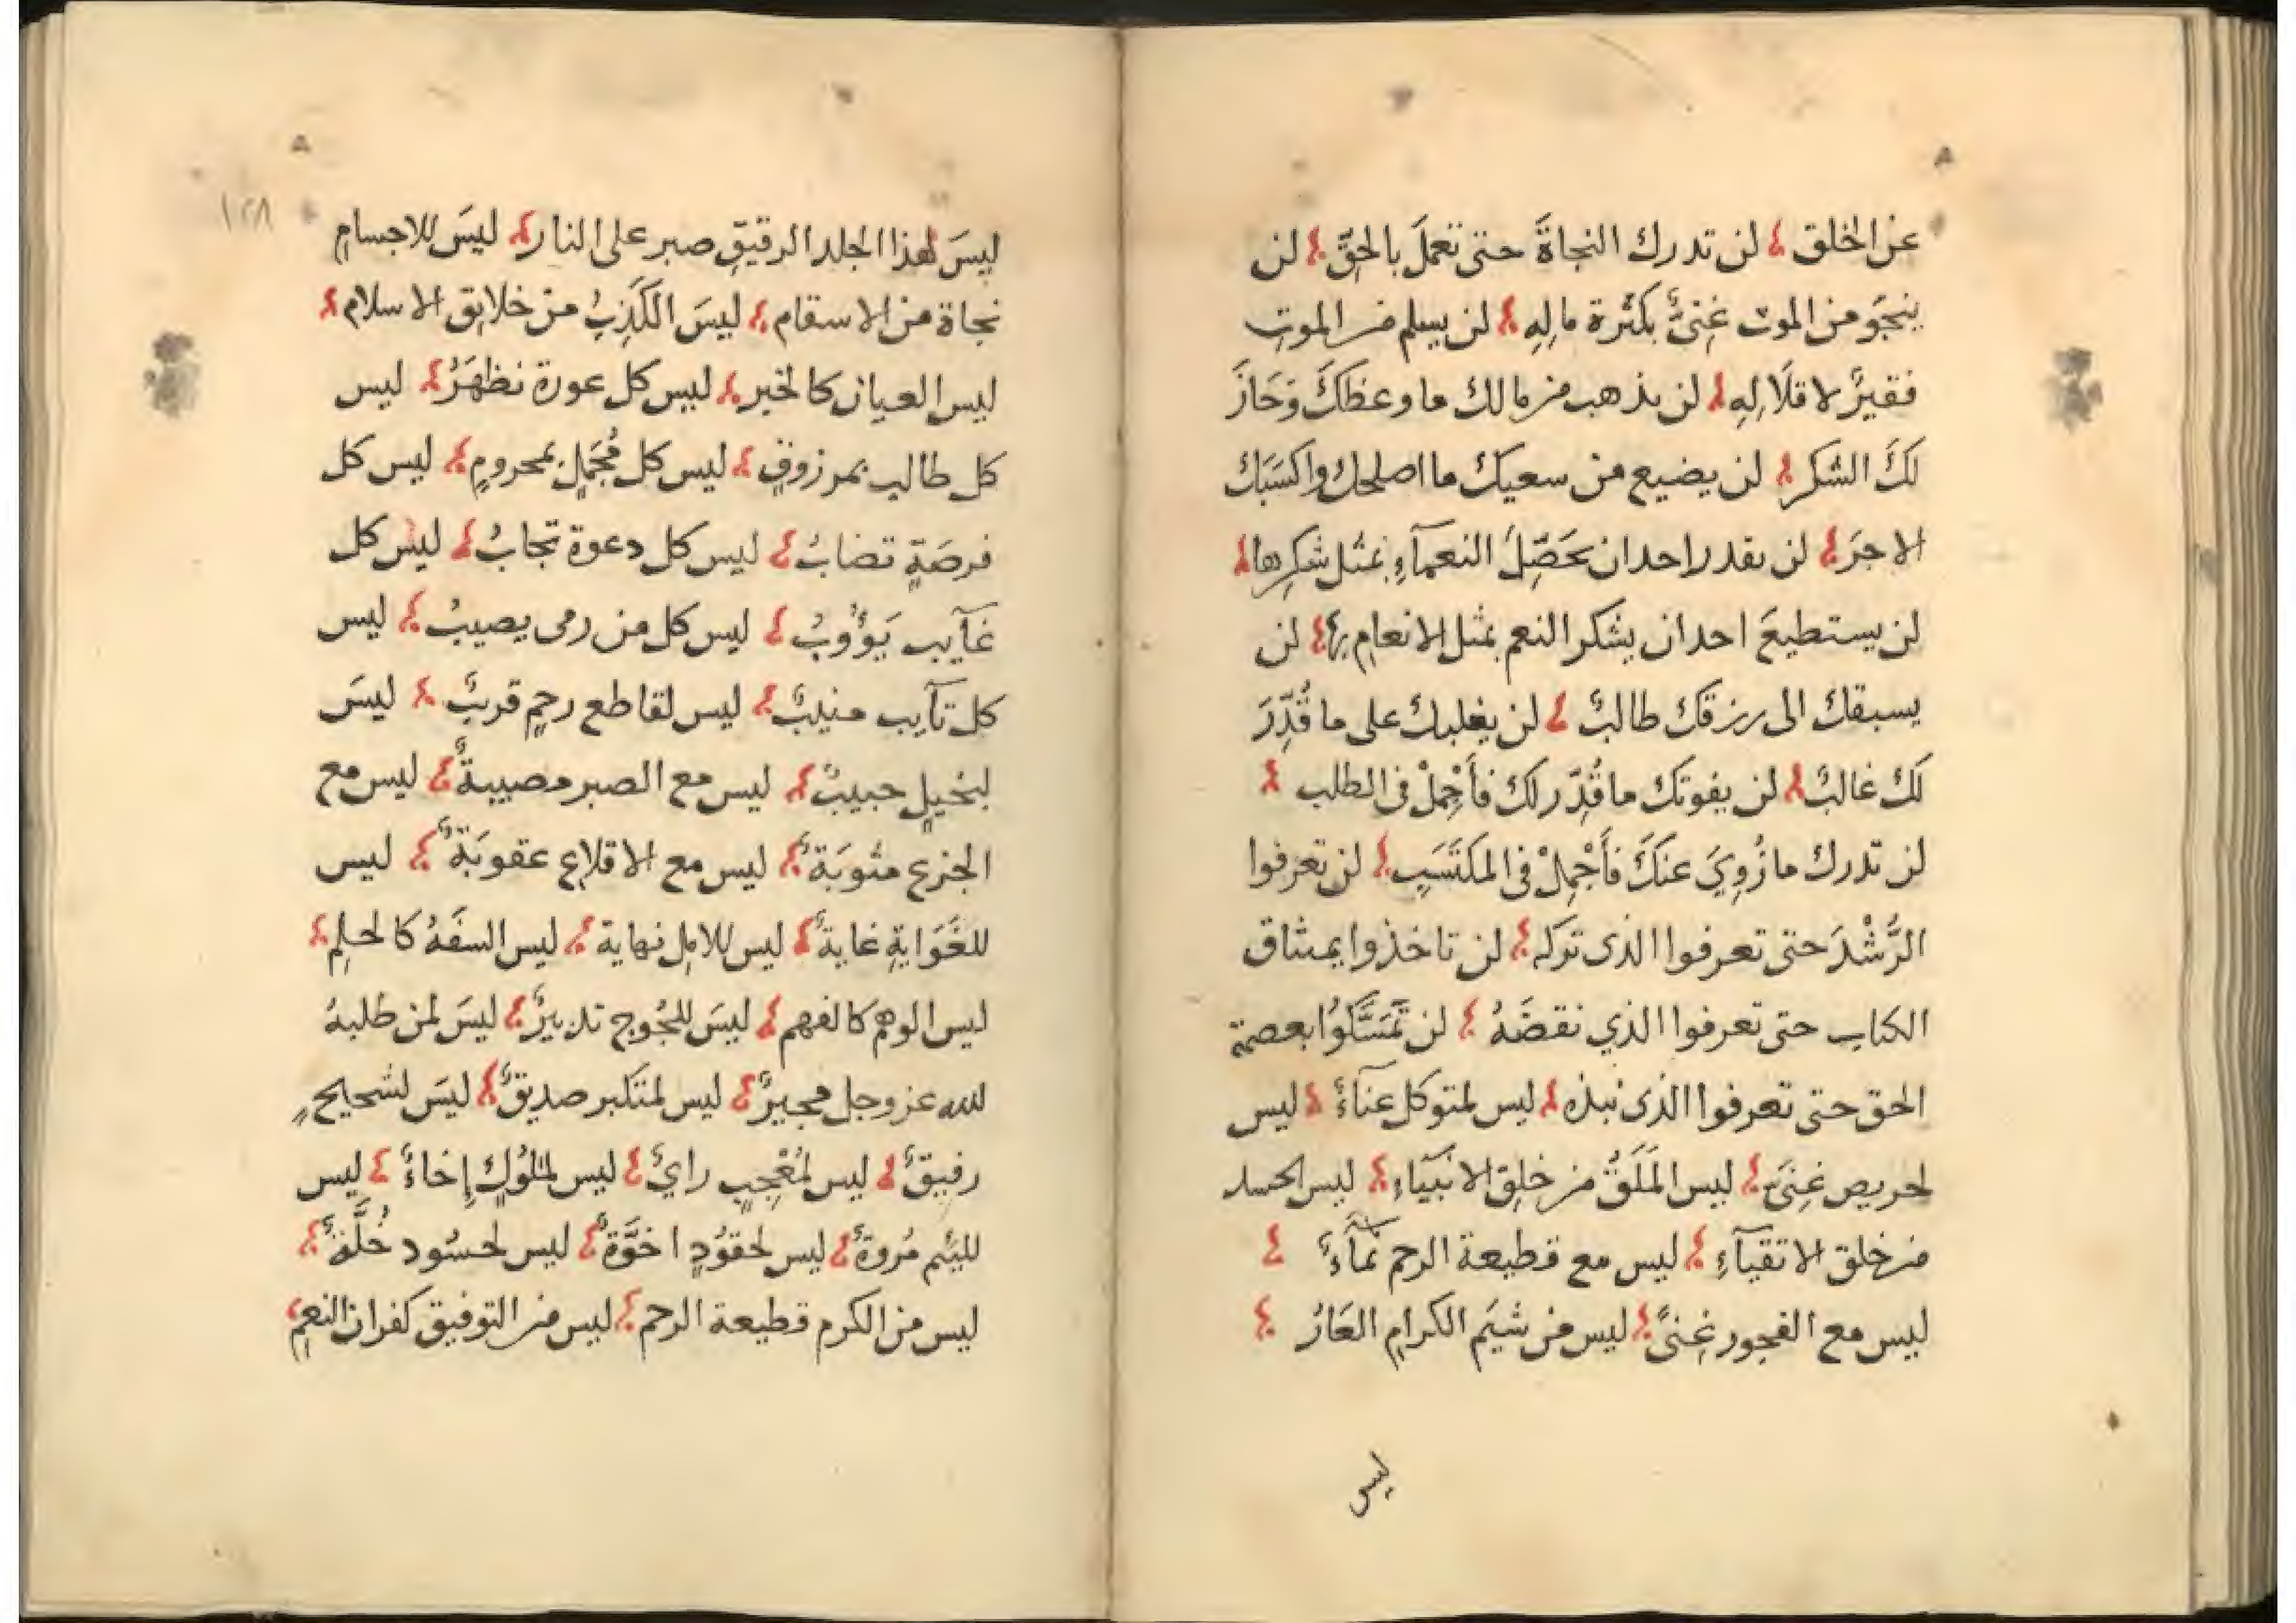 عن الخلق لن تدرك النجاةَ حتى تعملَ بالحقِّ لن
ينجوَ من الموت غِنىٌّ بكثرة مالِهِ لن يسلم من الموتِ
فقيرٌ لاقلَالِهِ لن يذهب من مالك ما وعظكَ وَحَازَ
لكَ الشكر لن يضيع من سعيك ما اصلحك واكسَبَك
الاجرَ لن يقدر احد ان يحَصِّلَ النعمآءِ بمثل شكرِها
لن يستطيعَ احد ان يشكر النعم بمثل الانعامِ بها لن
يسبقك الى رزقك طالبٌ لن يغلبك على ما قُدِّرَ
لكَ غالبٌ لن يفوتك ما قُدِّر لك فأَجْمِلْ فى الطلب
لن تدرك ما زُوِيَ عنكَ فأَجْمِلْ فى المكتَسَبِ لن تعرفوا
الرُّشْدَ حتى تعرفوا الذى تركه لن تاخذوا بميثاق
الكتاب حتى تعرفوا الذي نقضَهُ لن تمَسَّكُوا بعصمة
الحق حتى تعرفوا الذى نبذه ليس لمتوكل عنآءٌ ليس
لحريص غِنىً ليس المَلَقُ من خلقِ الانبيَاءِ ليس الحسد
من خلق الاتقيآءِ ليس مع قطيعة الرحم نمآءٌ
ليس مع الفجور غِنىً ليس من شيَم الكرامِ العَارُ
ليس
١٢٨
ليسَ لهذا الجلد الرقيقِ صبر على النار ليسَ للاجسامِ
نجاة من الاسقام ليسَ الكَذِبُ من خلايق الاسلام
ليس العيان كالخبر ليس كل عورة تظهَرُ ليس
كل طالبٍ بمرزوقٍ ليس كل مُجمِلٍ بمحرومٍ ليس كل
فرصَةٍ تصابُ ليس كل دعوة تجابُ ليس كل
غآيب يَؤُوبُ ليس كل من رمى يصيبُ ليس
كل تآيب منيبٌ ليس لقاطع رحمٍ قريبٌ ليسَ
لبخيلٍ حبيبٌ ليس مع الصبر مصيبةٌ ليس مع
الجزع مثوبَةٌ ليس مع الاقلاعِ عقوبَةٌ ليس
للغَوَايةِ غايةٌ ليس للاملِ نهاية ليس السفَهُ كالحلِم
ليس الوهم كالفهم ليسَ للجُوج تدبيرٌ ليسَ لمن طلبهُ
الله عز وجل مجيرٌ ليس لمتكبر صديقٌ ليسَ لشحيحٍ
رفيقٌ ليس لمُعْجِبٍ رايٌ ليس لملُوكٍ إِخاءٌ ليس
للئيم مُروةٌ ليس لحقوُدٍ اخوَّةٌ ليس لحسُود خُلَّةٌ
ليس من الكرم قطيعة الرحم ليس من التوفيق كفران النعمِ